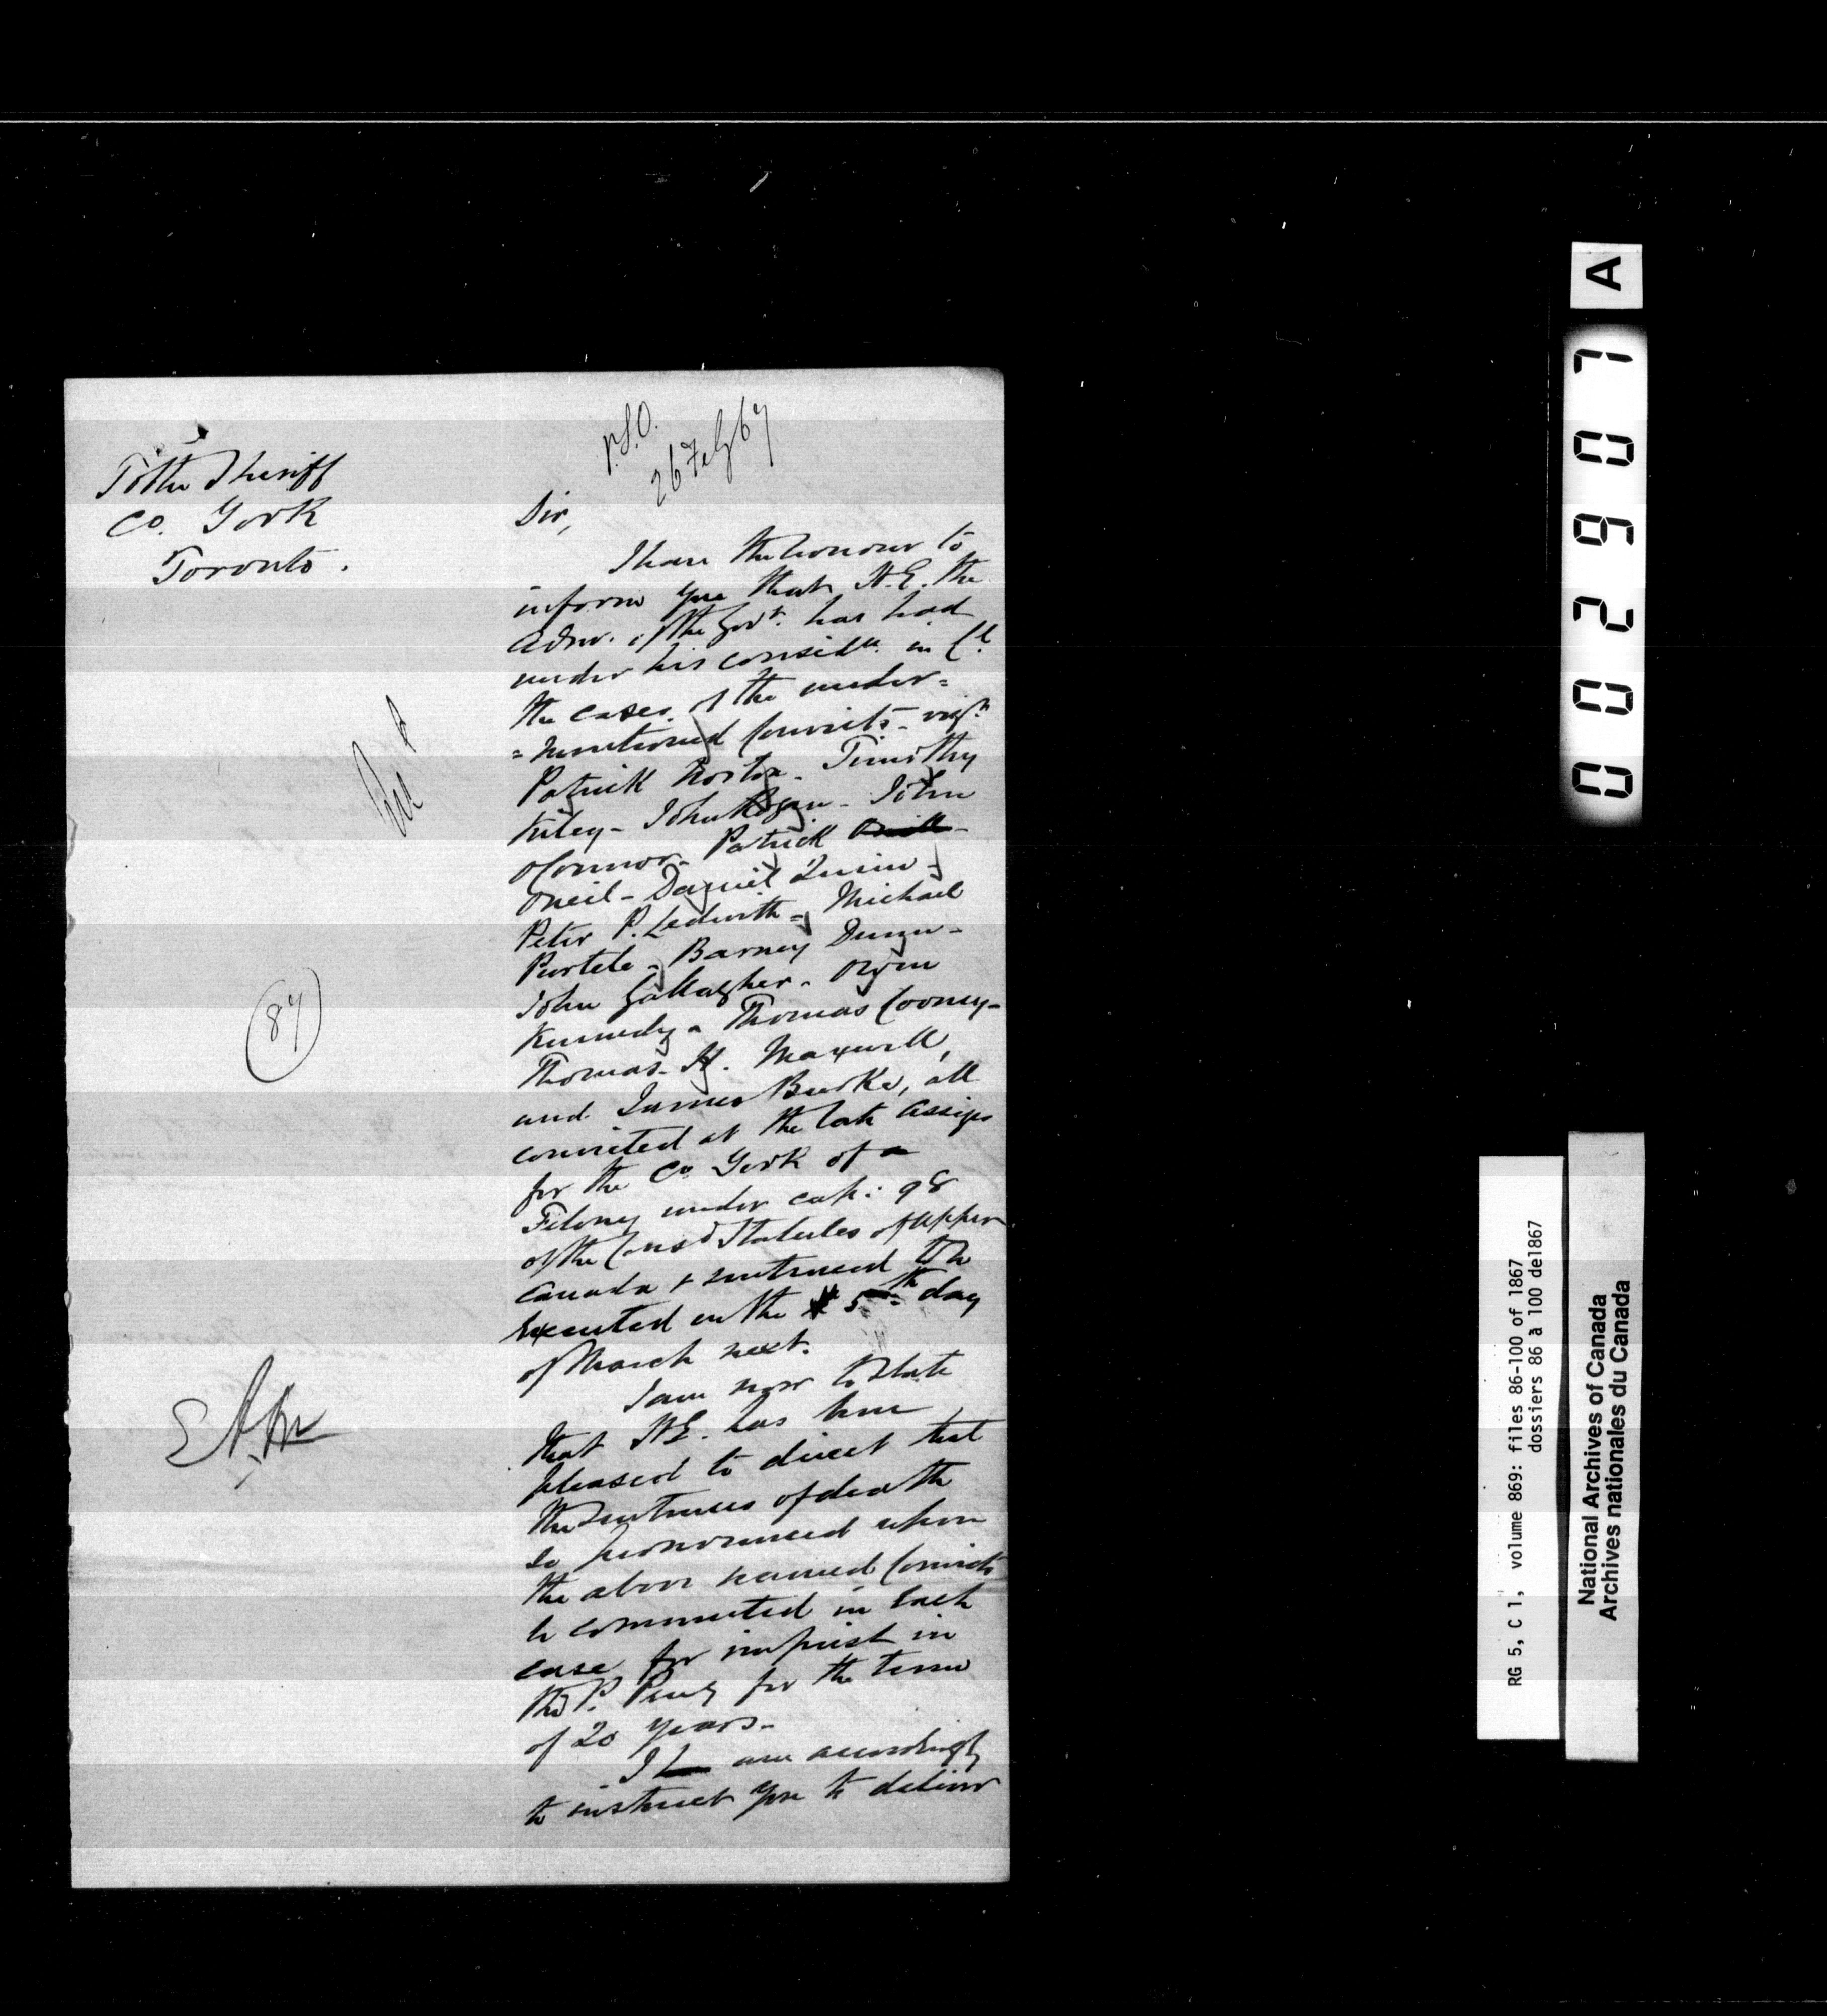 P.S.O.
26 Feby 67
To the Sheriff
Co. York
Toronto.
Sir,
I have the honour to
inform you that H.E. the
Admr. of the Govt. has had
under his considn. in Cl.
the cases of the under=
=mentioned Convicts - vizt.
Patrick Norton - Timothy
Kiley - John Hogan - John
OConnor - Patrick
Oneil - Daniel Quinn -
Peter P. Ledwith - Michael
Purtele - Barney Dunn -
John Gallagher - Owen
Kennedy - Thomas Cooney -
Thomas H. Maxwell,
and James Burke, all
convicted at the late Assizes
for the Co York of a
Felony under cap: 98
of the Consd Statutes of Upper
Canada & sentenced to be
Executed on the 5th day
of March next.
I am now to State
that H.E. has been
pleased to direct that
the Sentences of death
so pronounced upon
the above named Convicts
be commuted in Each
case for imprist in
the P. Peny for the term
of 20 years -
I am accordingly
to instruct you to deliver
87
A
002907
RG 5, C 1, volume 869: files 86-100 of 1867
dossiers 86 à 100 de1867
National Archives of Canada
Archives nationales du Canada